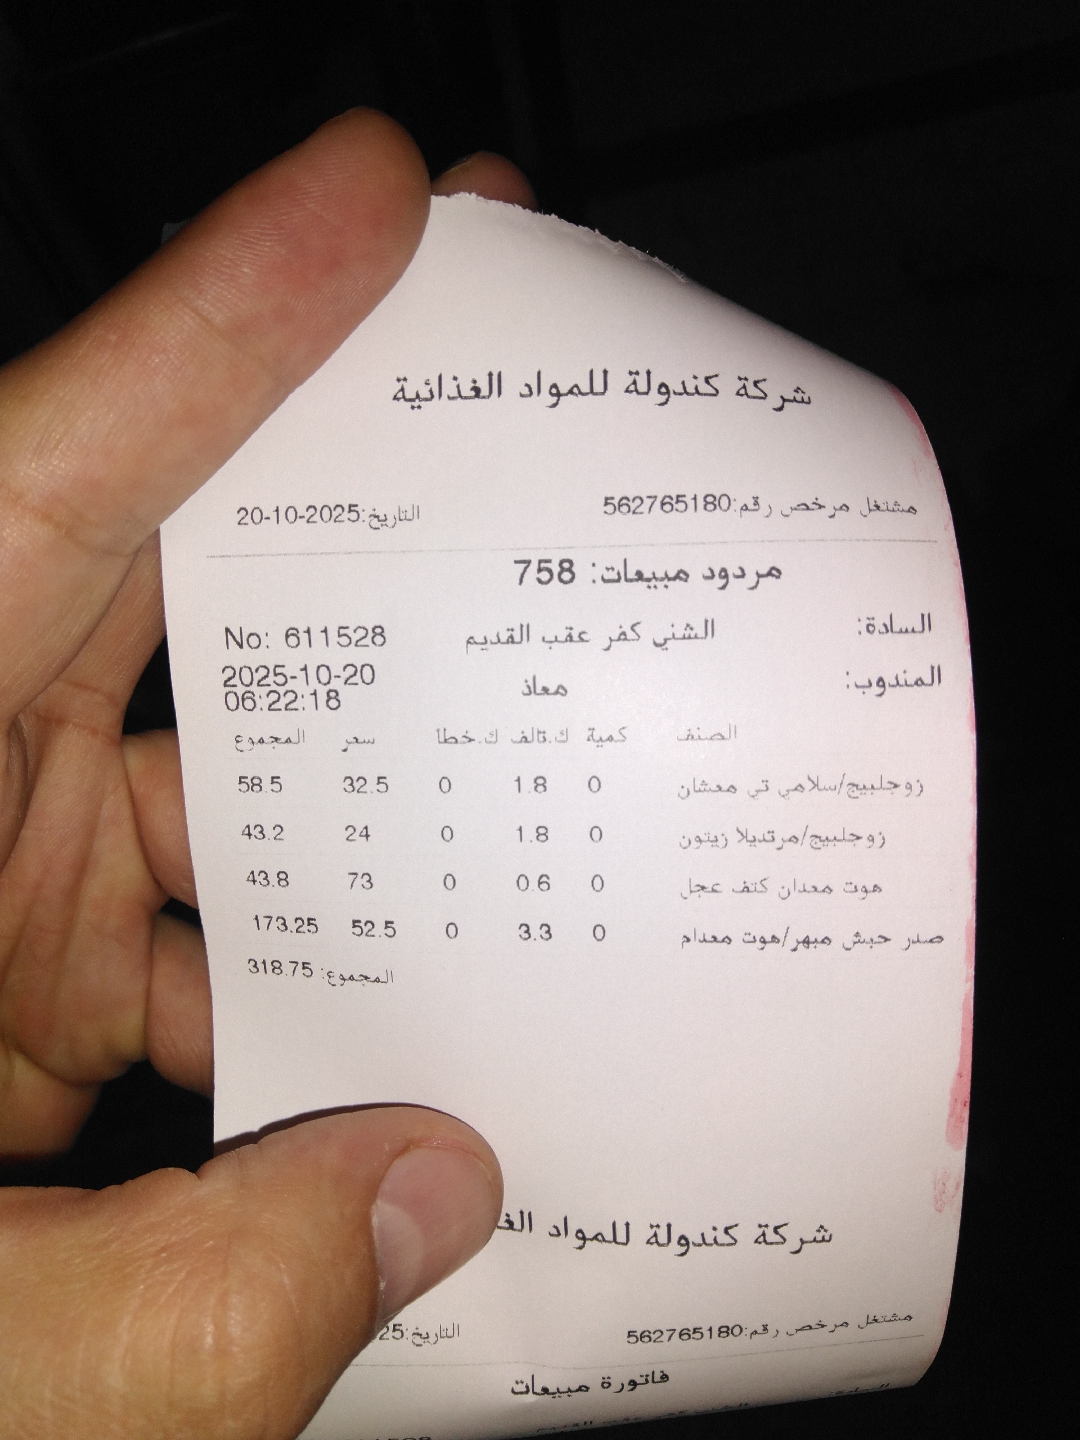 شركة كندولة للمواد الغذائية
مشتغل مرخص رقم:562765180 التاريخ:20-10-2025
مردود مبيعات: 758
السادة: الشني كفر عقب القديم No: 611528
المندوب: معاذ 2025-10-20
06:22:18
الصنف كمية ك.تالف ك.خطا سعر المجموع
زوجلبيج/سلامي تي معشان 0 1.8 0 32.5 58.5
زوجلبيج/مرتديلا زيتون 0 1.8 0 24 43.2
هوت معدان كتف عجل 0 0.6 0 73 43.8
صدر حبش مبهر/هوت معدام 0 3.3 0 52.5 173.25
المجموع: 318.75
شركة كندولة للمواد
مشتغل مرخص رقم:562765180 التاريخ:
فاتورة مبيعات